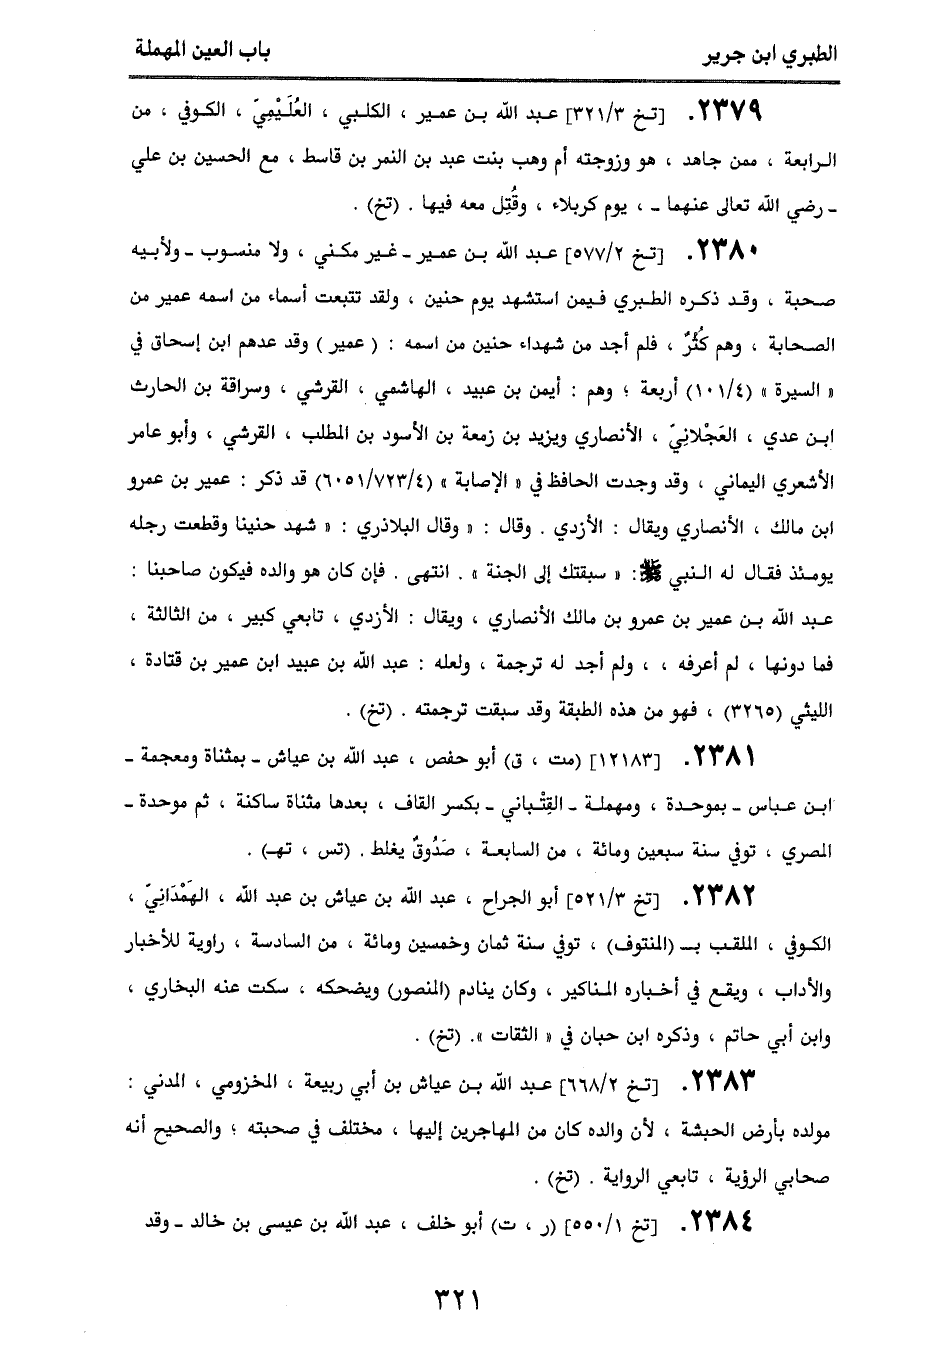 الطبري ابن جرير باب العين المهملة
٢٣٧٩. [تـخ ٣٢١/٣] عبد الله بن عمير ، الكلبي ، العُلَيْمِيّ ، الكوفي ، من
الرابعة ، ممن جاهد ، هو وزوجته أم وهب بنت عبد بن النمر بن قاسط ، مع الحسين بن علي
ـ رضي الله تعالى عنهما ـ ، يوم كربلاء ، وقُتِل معه فيها . (تخ) .
٢٣٨٠. [تـخ ٥٧٧/٢] عبد الله بـن عمير ـ غير مكـني ، ولا منسوب ـ ولأبيه
صحبة ، وقد ذكره الطبري فيمن استشهد يوم حنين ، ولقد تتبعت أسماء من اسمه عمير من
الصحابة ، وهم كُثُرٌ ، فلم أجد من شهداء حنين من اسمه : ( عمير ) وقد عدهم ابن إسحاق في
« السيرة » (١٠١/٤) أربعة ؛ وهم : أيمن بن عبيد ، الهاشمي ، القرشي ، وسراقة بن الحارث
ابن عدي ، العَجْلانِيّ ، الأنصاري ويزيد بن زمعة بن الأسود بن المطلب ، القرشي ، وأبو عامر
الأشعري اليماني ، وقد وجدت الحافظ في « الإصابة » (٦٠٥١/٧٢٣/٤) قد ذكر : عمير بن عمرو
ابن مالك ، الأنصاري ويقال : الأزدي . وقال : « وقال البلاذري : « شهد حنينا وقطعت رجله
يومئذ فقال له النبي ﷺ: « سبقتك إلى الجنة » . انتهى . فإن كان هو والده فيكون صاحبنا :
عبد الله بـن عمير بن عمرو بن مالك الأنصاري ، ويقال : الأزدي ، تابعي كبير ، من الثالثة ،
فما دونها ، لم أعرفه ، ، ولم أجد له ترجمة ، ولعله : عبد الله بن عبيد ابن عمير بن قتادة ،
الليثي (٣٢٦٥) ، فهو من هذه الطبقة وقد سبقت ترجمته . (تخ) .
٢٣٨١. [١٢١٨٣] (مت ، ق) أبو حفص ، عبد الله بن عياش ـ بمثناة ومعجمة ـ
ابن عباس ـ بموحدة ، ومهملة ـ القِتْباني ـ بكسر القاف ، بعدها مثناة ساكنة ، ثم موحدة ـ
المصري ، توفي سنة سبعين ومائة ، من السابعة ، صَدُوقٌ يغلط . (تس ، تهـ) .
٢٣٨٢. [تخ ٥٢١/٣] أبو الجراح ، عبد الله بن عياش بن عبد الله ، الهَمْدَانِيّ ،
الكوفي ، الملقب بـ (المنتوف) ، توفي سنة ثمان وخمسين ومائة ، من السادسة ، راوية للأخبار
والأداب ، ويقع في أخباره المناكير ، وكان ينادم (المنصور) ويضحكه ، سكت عنه البخاري ،
وابن أبي حاتم ، وذكره ابن حبان في « الثقات ». (تخ) .
٢٣٨٣. [تـخ ٦٦٨/٢] عبد الله بـن عياش بن أبي ربيعة ، المخزومي ، المدني :
مولده بأرض الحبشة ، لأن والده كان من المهاجرين إليها ، مختلف في صحبته ؛ والصحيح أنه
صحابي الرؤية ، تابعي الرواية . (تخ) .
٢٣٨٤. [تخ ٥٥٠/١] (ر ، ت) أبو خلف ، عبد الله بن عيسى بن خالد ـ وقد
٣٢١